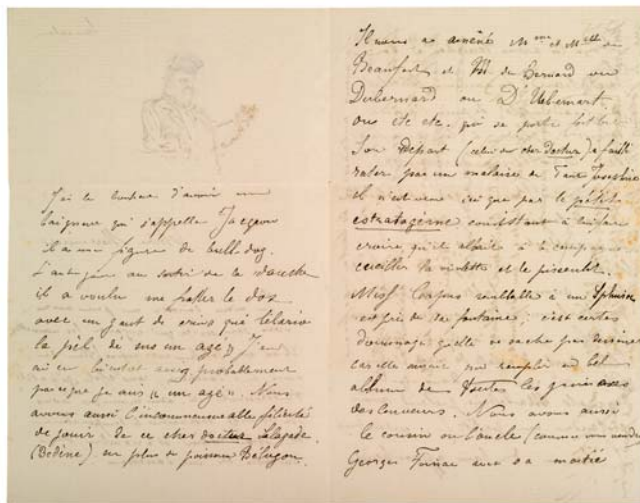 J'ai le bonheur d'avoir un
baigneur qui s'appelle Jacques
il a une figure de bull-dog.
L'autre jour au sortir de la douche
il a voulu me frotter le dos
avec un gant de crin qui
la piel de
ai eu bientôt assez probablement
parceque je suis "un agé". Nous
avons aussi l'incommensurable félicité
de jouir de ce cher docteur
(Bedène) en plus de poisson Bélugou.
Il nous a amené Mme et Melle de
Beaufort et M de Bernard ou
Dubernard ou D'Uebernart
ou etc etc. qui se porte
Son départ (celui du cher Docteur) a failli
rater par un malaise de Tante Joséphine
il n'est venu ici que par le
estratagème consistant à lui faire
croire qu'il allait à la campagne
cueillir la violette et le pissenlit.
Miss Corpus ressemble à un Sphinx
en gris de fontaine; c'est certes
dommage qu'elle ne sache pas dessiner
car elle aurait pu remplir un bel
album de toutes les grimaces
des baigneurs. Nous avons aussi
le cousin ou l'oncle (comme vous voudrez)
Georges avec sa moitié